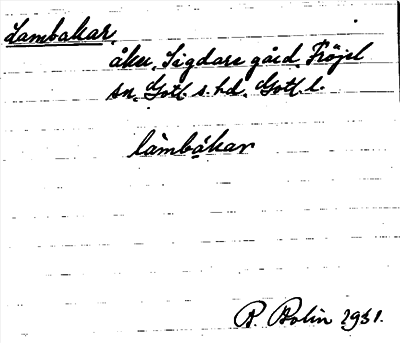 Lambakar.
åker, Sigdars gård, Fröjel
sn, Gotl. s. hd. Gotl. l.
làmbákar
B. Bolin 1931.